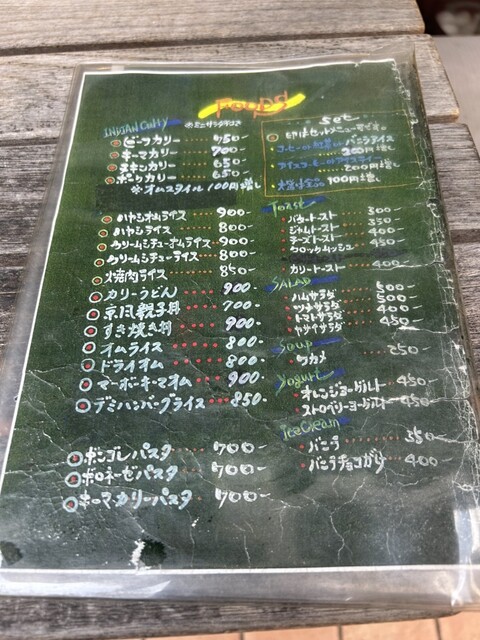 FOODS
INDIAN Curry ※ミニサラダ付き
ビーフカリー 750-
キーマカリー 700
チキンカリー 650-
ポークカリー 650-
※オムスタイル 100円増し
ハヤシオムライス 900-
ハヤシライス 800-
クリームシチューオムライス 900-
クリームシチューライス 800-
焼肉ライス 850-
カリーうどん 900-
京風親子丼 700-
すき焼き丼 900-
オムライス 800-
ドライオム 800-
マーボーキーマオム 900-
デミハンバーグライス 850-
ボンゴレパスタ 700-
ボロネーゼパスタ 700-
キーマカリーパスタ 700-
Set
◎印はセットメニュー可です。
200円増し
アイスコーヒー or アイスティー
200円増し
大盛は全品 100円増し
Toast
バタートースト 300-
ジャムトースト 350-
チーズトースト 400-
クロックムッシュ 450-
カリートースト 400-
SALAD
ハムサラダ 500-
ツナサラダ 500-
トマトサラダ 400-
ヤサイサラダ 450-
Soup
ワカメ 250-
Yogurt
オレンジヨーグルト 450-
ストロベリーヨーグルト 450-
Ice Cream
バニラ 350-
バニラチョコがけ 400